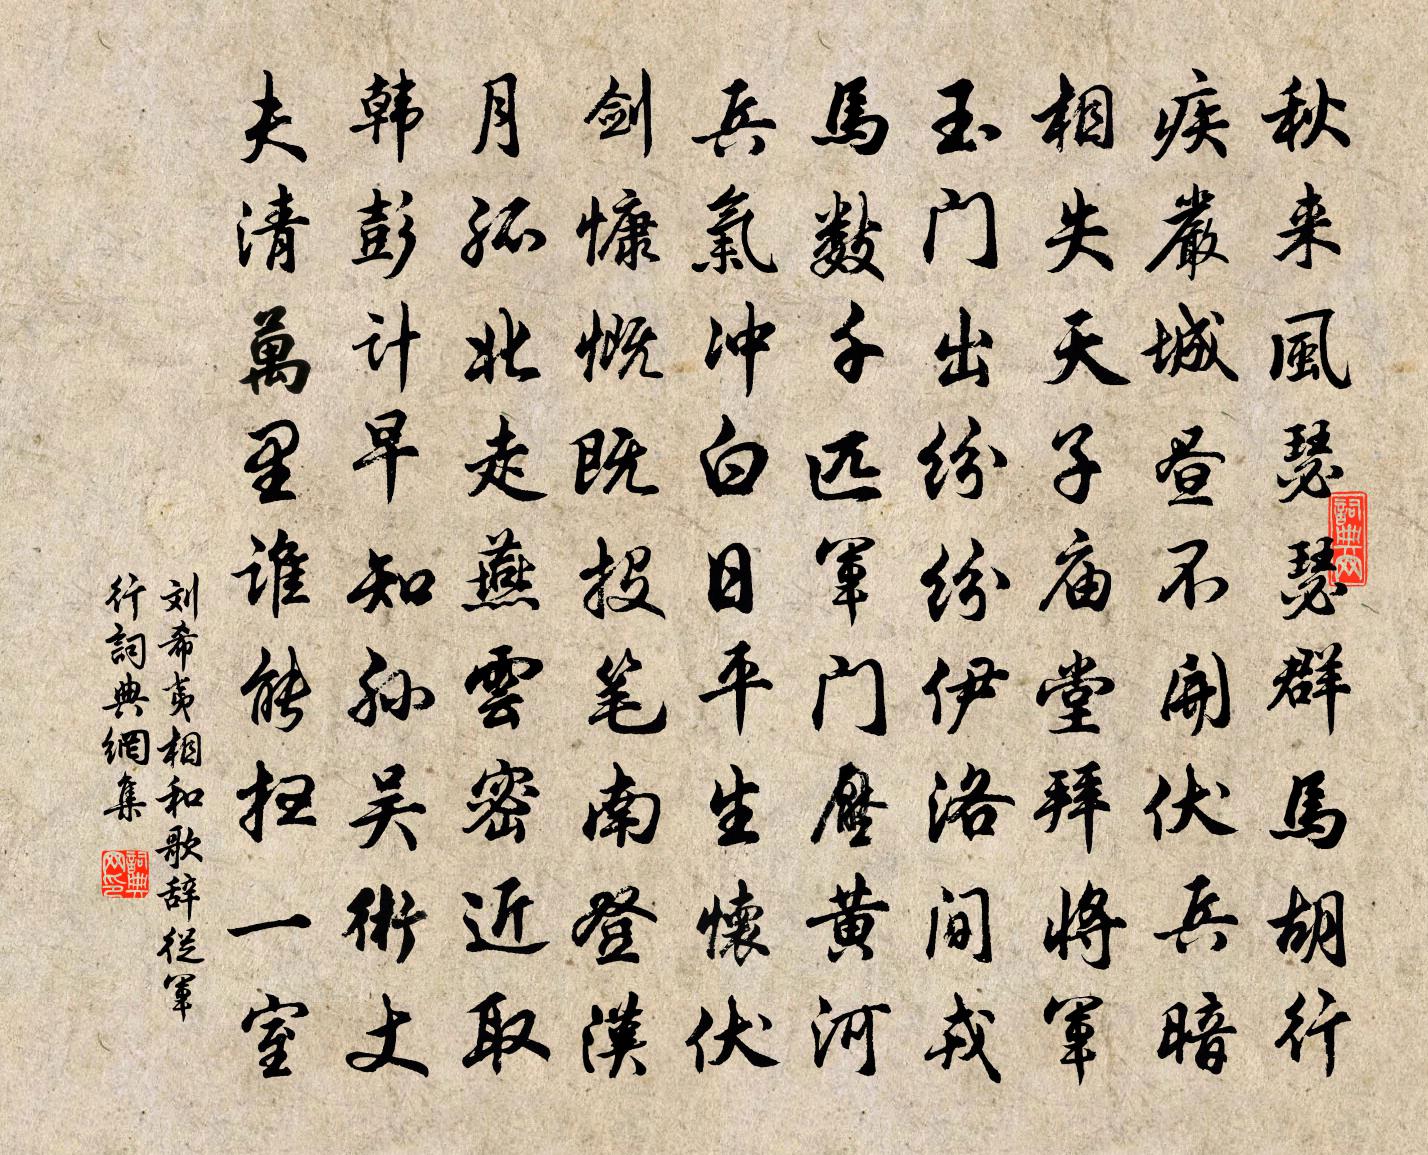 秋来風瑟瑟群馬胡行
疾嚴城昼不開伏兵暗
相失天子庙堂拜將軍
玉门出纷纷伊洛间戎
馬数千匹軍门壓黄河
兵氣冲白日平生懷伏
剑慷慨既投笔南登漢
月孤北走燕雲密近取
韩彭计早知孙吴術丈
夫清萬里谁能扫一室
刘希夷相和歌辞從軍
行詞典網集
詞典网
詞典网印